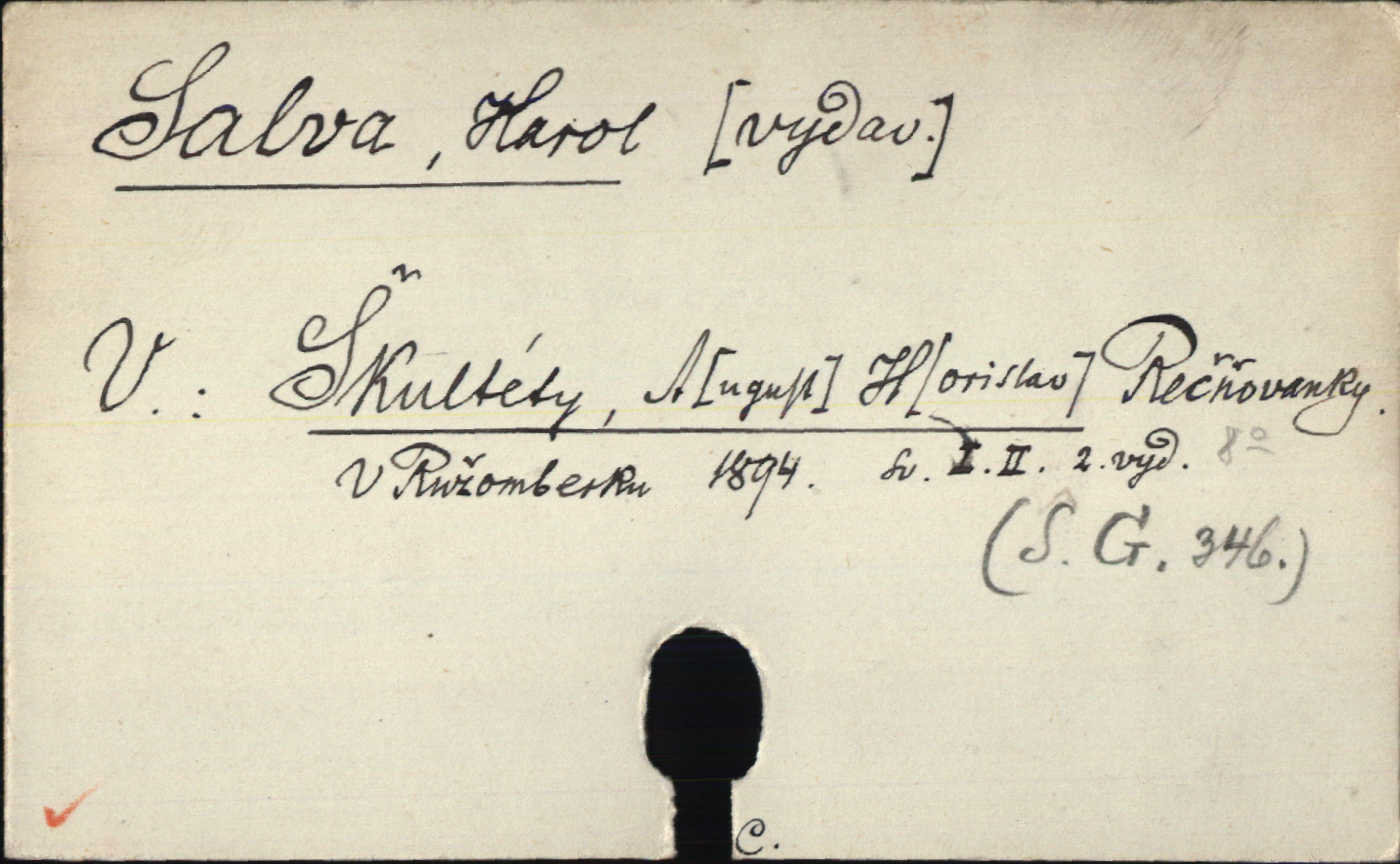 Salva, Karol [vydav.]
V.: Škultéty, A[ugust] H[orislav] Rečňovanky.
V Ružomberku 1894. Sv. I. II. 2. vyd. 8º
(S. G. 346.)
C.